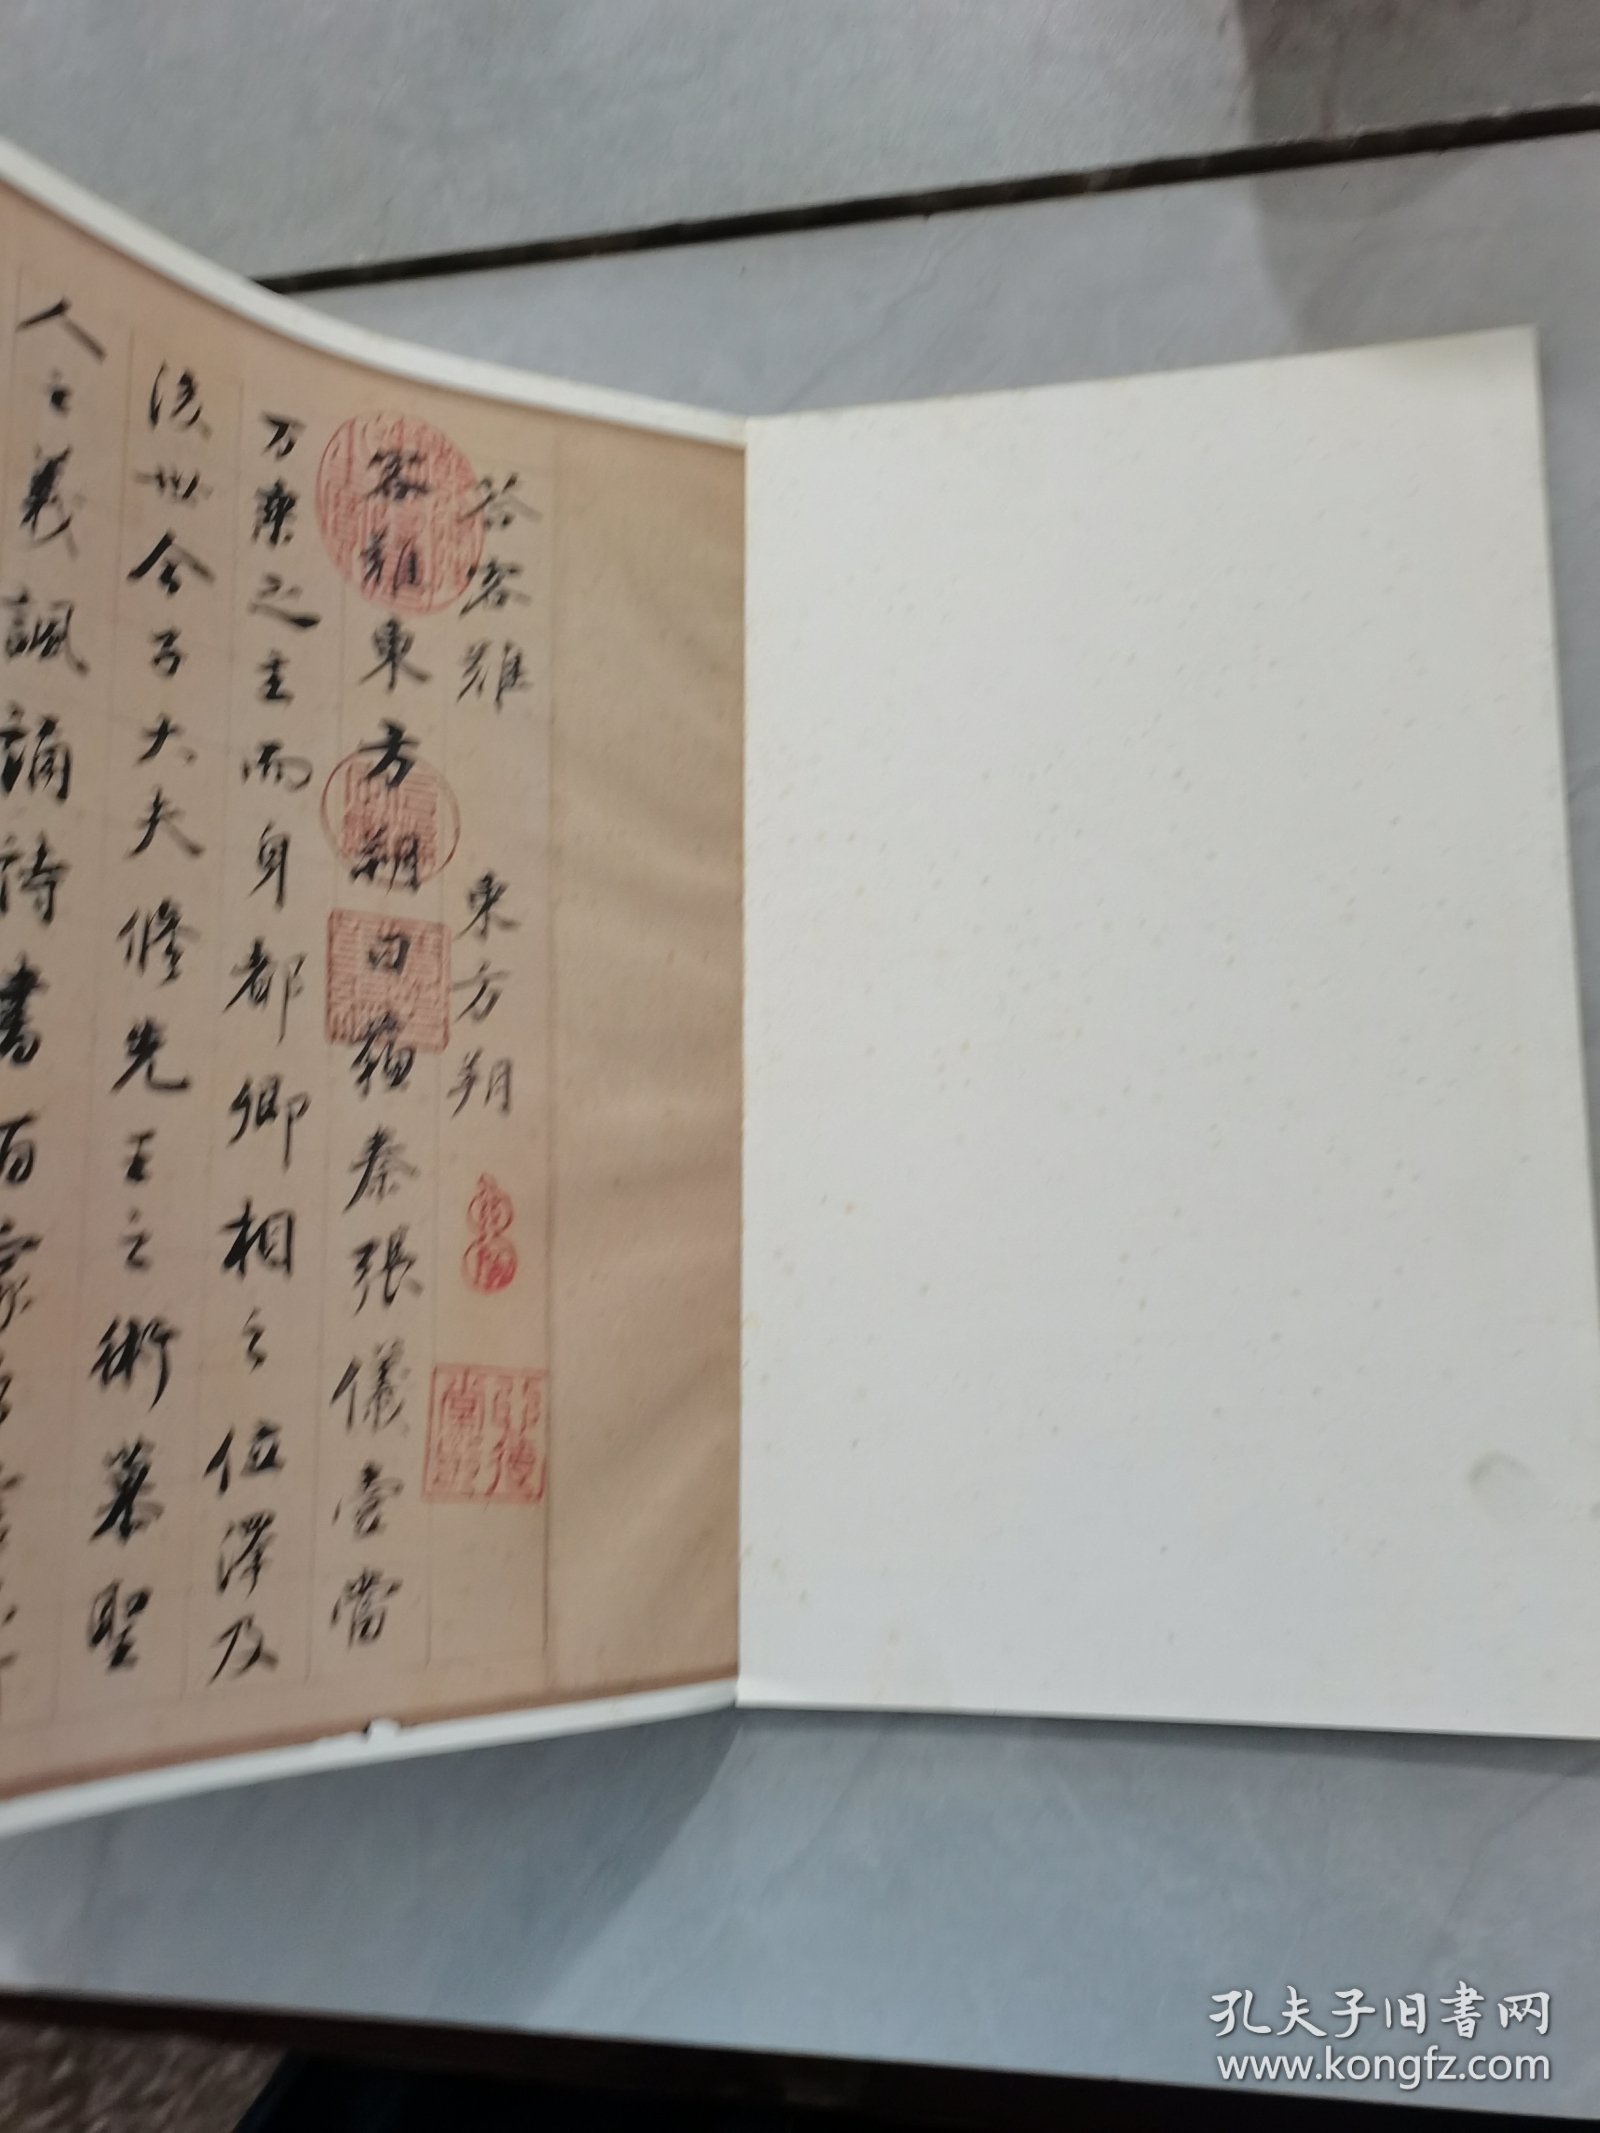 答客難 東方朔
客難東方朔曰蘇秦張儀壹當
万乘之主而身都卿相之位澤及
後世今子大夫修先王之術慕聖
人之義諷誦詩書百家之
孔夫子旧书网
www.kongfz.com